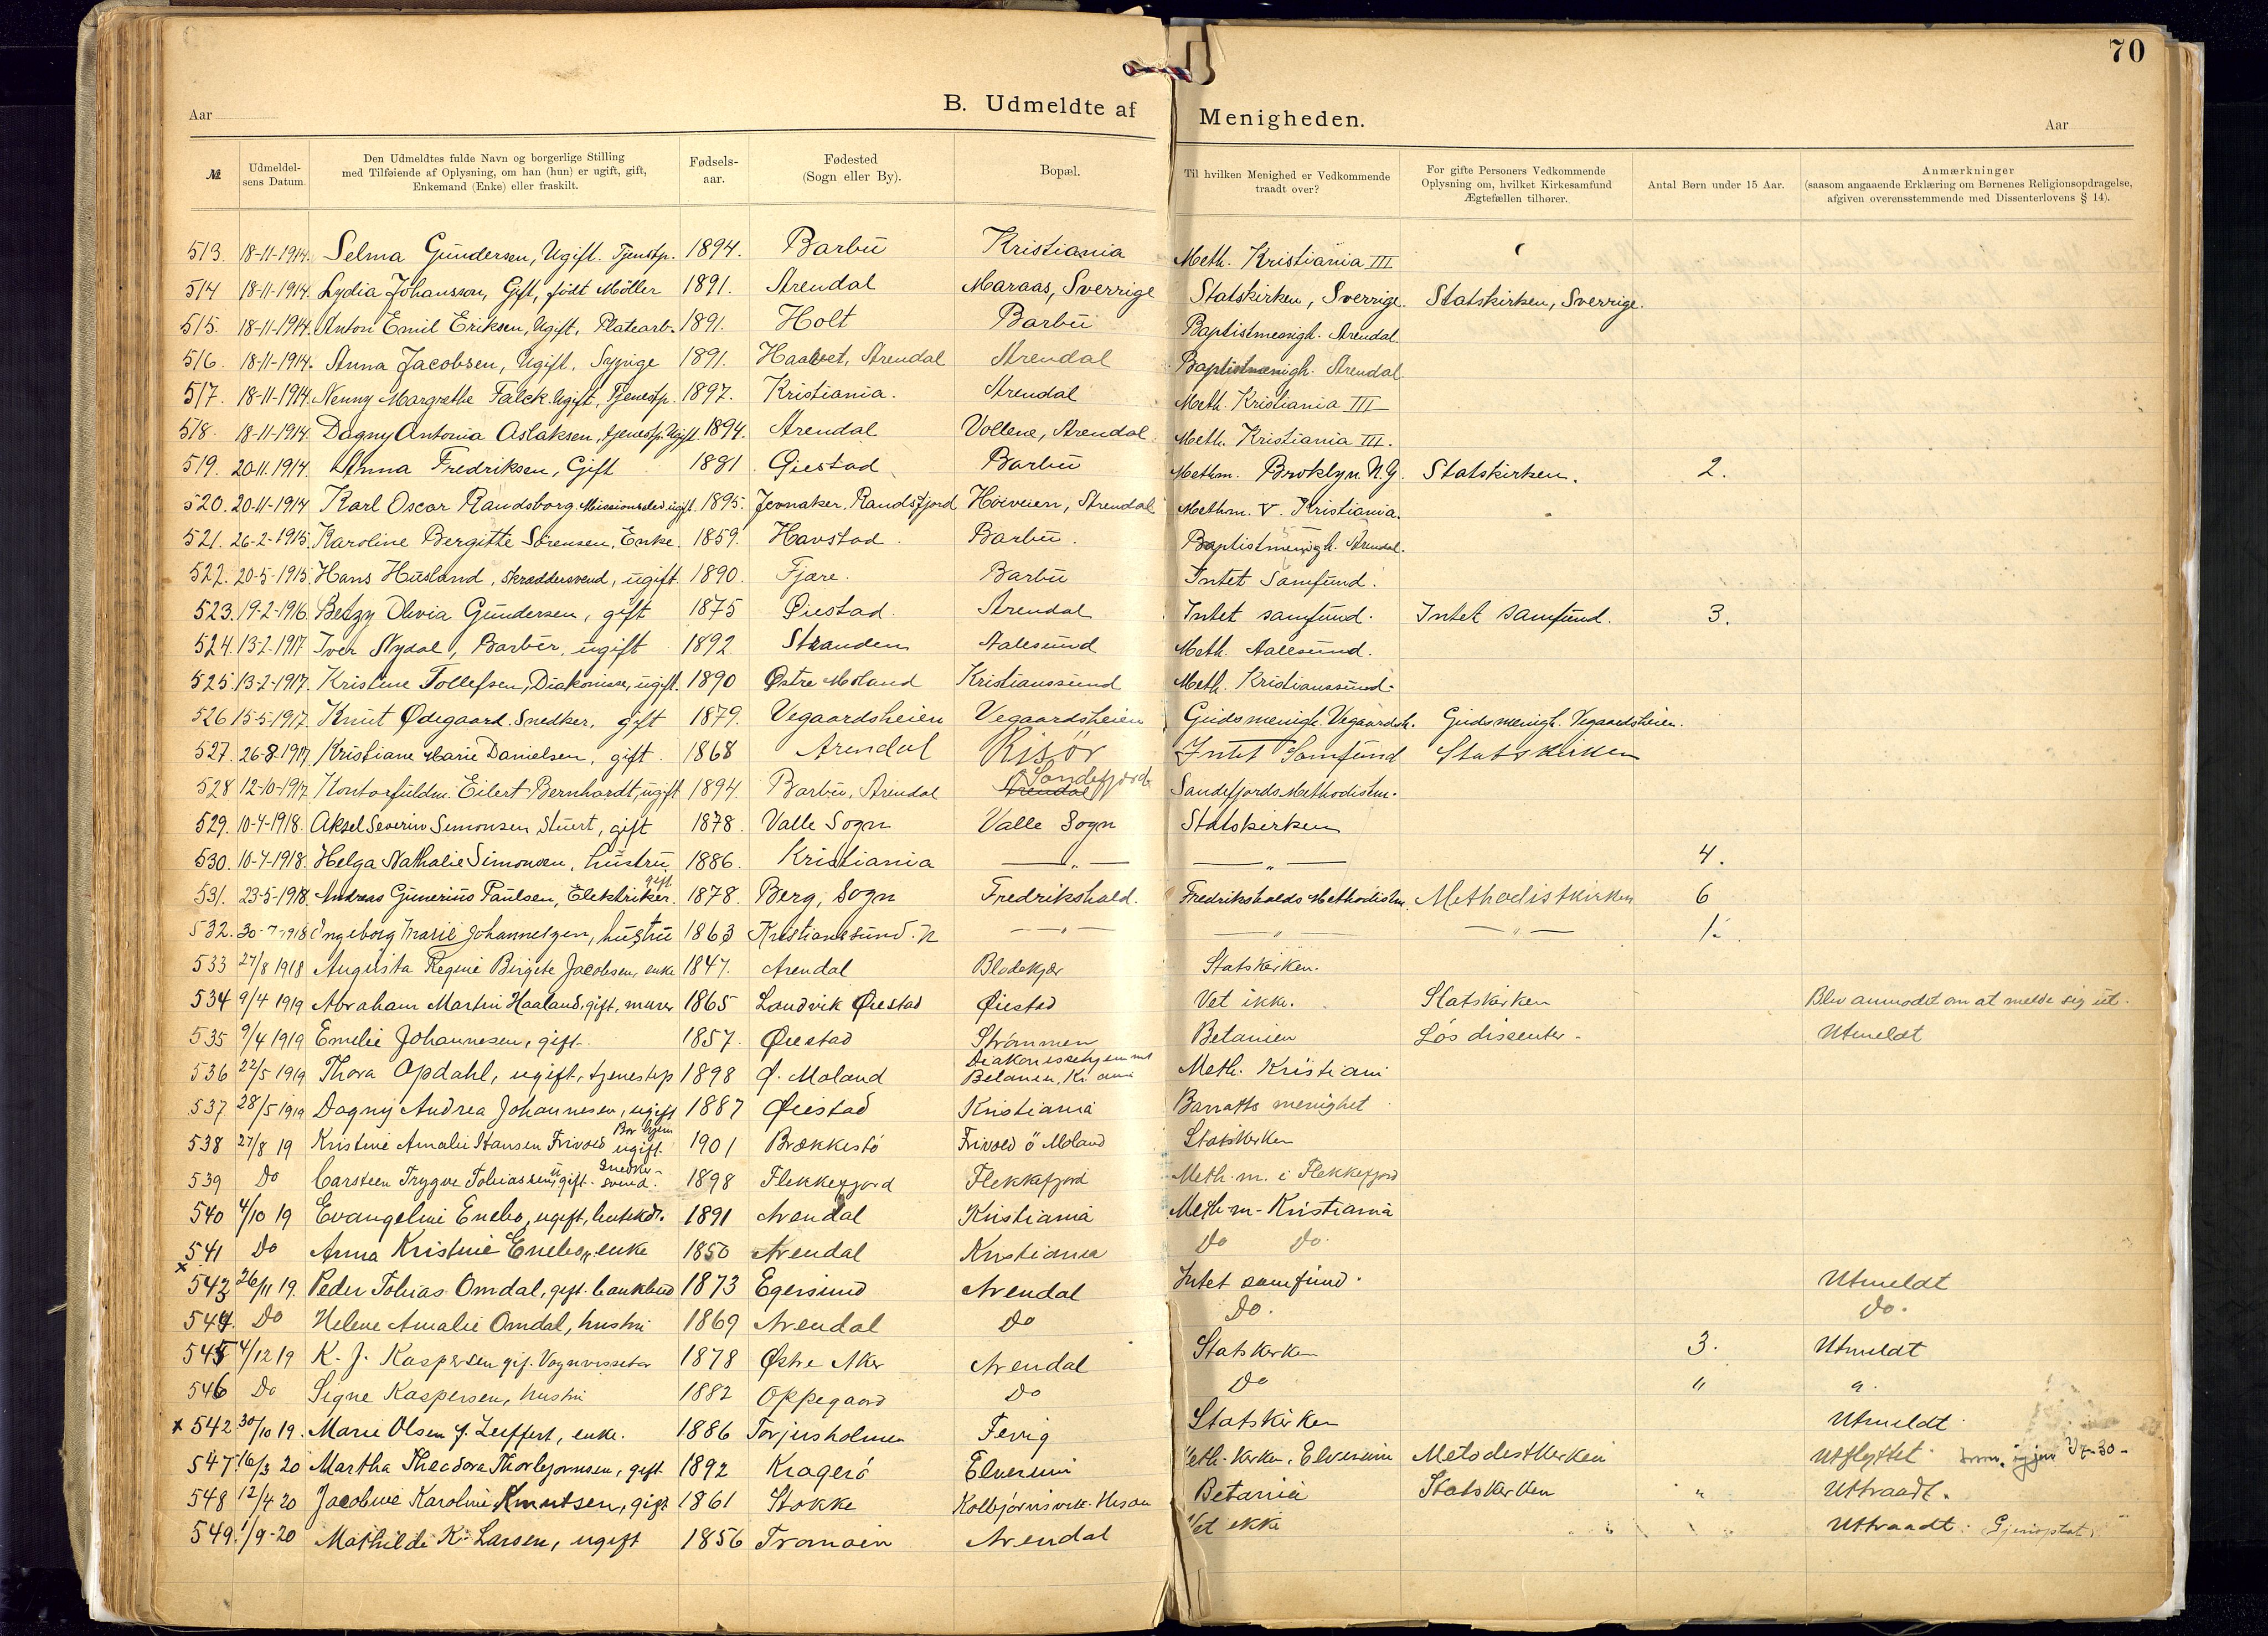 70
B. Udmeldte af Menigheden.
Aar Aar
№ Udmeldelsens Datum. Den Udmeldtes fulde Navn og borgerlige Stilling med Tilføiende af Oplysning, om han (hun) er ugift, gift, Enkemand (Enke) eller fraskilt. Fødselsaar. Fødested (Sogn eller By). Bopæl. Til hvilken Menighed er Vedkommende traadt over? For gifte Personers Vedkommende Oplysning om, hvilket Kirkesamfund Ægtefællen tilhører. Antal Børn under 15 Aar. Anmærkninger (saasom angaaende Erklæring om Børnenes Religionsopdragelse, afgiven overensstemmende med Dissenterlovens § 14).
513. 18-11-1914. Selma Gundersen, Ugift. Tjenstp. 1894. Barbu Kristiania Meth. Kristiania III
514 18-11-1914. Lydia Johansson, Gift, født Møller 1891. Arendal Maraas, Sverrige Statskirken, Sverrige. Statskirken, Sverrige.
515. 18-11-1914. Anton Emil Eriksen, Ugift, Platearb. 1891. Holt Barbu Baptistmenigh. Arendal
516. 18-11-1914. Anna Jacobsen, Ugift, Sypige 1891. Haabet, Arendal Arendal Baptistmenigh. Arendal.
517. 18-11-1914. Nenny Margrethe Falck. Ugift, Tjenestp. 1897. Kristiania. Arendal Meth. Kristiania III
518. 18-11-1914. Dagny Antonia Aslaksen, tjenestp. Ugift 1894. Arendal Vollene, Arendal. Meth. Kristiania III.
519. 20-11-1914. Anna Fredriksen, Gift 1881. Øiestad Barbu Methm. Broklyn. N.Y. Statskirken. 2.
520. 20-11-1914 Karl Oscar Randsborg. Missionselev ugift. 1895. Jevnaker, Randsfjord Høiveien, Arendal Methm. V. Kristiania.
521. 26-2-1915. Karoline Bergitte Sørensen, Enke. 1859. Havstad. Barbu. Baptistmenigh. Arendal.
522. 20-5-1915. Hans Husland, Skræddersvend, ugift. 1890. Fjære. Barbu Intet Samfund.
523. 19-2-1916. Betzy Olivia Gundersen, gift 1875 Øiestad. Arendal Intet samfund. Intet samfund. 3.
524. 13-2-1917 Iver Nydal, Barber, ugift 1892 Stranden Aalesund Meth. Aalesund.
525. 13-2-1917. Kristine Tollefsen, Diakonisse, ugift. 1890 Østre Moland Kristianssund Meth. Kristianssund.
526 15-5-1917. Knut Ødegaard. Snedker, gift 1879. Vegaardsheien Vegaardsheien Gudsmenigh. Vegaardsh. Gudsmenigh. Vegaardsheien.
527. 26-8-1917 Kristiane Marie Danielsen, gift. 1868 Arendal Risör Intet Samfund Statskirken
528 12-10-1917. Kontorfuldm. Eilert Bernhardt, ugift 1894. Barbu, Arendal Arendal Sandefjord Sandefjords Methodistm.
529. 10-4-1918. Aksel Severin Simonsen Stuert, gift 1878. Valle Sogn Valle Sogn Statskirken
530. 10-4-1918. Helga Nathalie Simonsen, hustru 1886. Kristiania — „ — — „ — 4.
531. 23-5-1918 Andreas Gunerius Paulsen, Elektriker. gift. 1878. Berg, Sogn Fredrikshald. Fredrikshalds Methodistm. Methodistkirken 6
532. 30-7-1918 Ingeborg Marie Johannesen, hustru 1863 Kristianssund. N — „ — — „ — — „ — 1.
533 27/8 1918 Augusta Regine Birgete Jacobsen, enke 1847. Arendal Blødekjær Statskirken.
534 9/4 1919 Abraham Martin Haaland, gift, murer 1865 Landvik Øiestad Øiestad Vet ikke. Statskirken Blev anmodet om at melde sig ut.
535 9/4 1919 Emelie Johannesen, gift. 1857. Øiestad Strømmen Betanien Løs dissenter. Utmeldt
536 22/5 1919 Thora Opdahl, ugift, tjenestep 1898 Ø. Moland Diakonissehjemmet Betanien, Kr. ania Meth. Kristiani
537 28/5 1919 Dagny Andrea Johannesen, ugift 1887 Øiestad Kristiania Barratts menighet
538 27/8 19 Kristine Amalie Hansen Frivold ugift. Bor hjem 1901 Brækkestø Frivold ö Moland Statskirken
539 Do Carsteen Trygve Tobiassen, ugift. Snedkersvend. 1898 Flekkefjord Flekkefjord Meth. m. i Flekkefjord
540 4/10 19 Evangeline Enebo, ugift, butikdr. 1891 Arendal Kristiania Meth-m- Kristiania
541 Do Anna Kristine Enebo, enke 1850 Arendal Kristiania Do Do.
x 543 26/11 19. Peder Tobias Omdal, gift. bankbud 1873 Egersund Arendal Intet samfund. Utmeldt
544. Do Helene Amalie Omdal, hustru 1869 Arendal Do Do. Do.
545 4/12 19 K. J. Kaspersen gif. Vognvisseter 1878 Østre Aker Arendal Statskirken 3. Utmeldt
546 Do Signe Kaspersen, hustru 1882 Oppegaard Do Do „ „
x 542 30/10 19. Marie Olsen f. Zeiffert, enke. 1886 Torjusholmen Fevig Statskirken Utmeldt.
547. 16/3 20 Martha Theodora Thorbjørnsen, gift 1892 Kragerø Elverum Meth. kirken, Elverum Metodistkirken Utflyttet igjen
548 12/4 20 Jacobine Karoline Knutsen, gift 1861 Stokke Kolbjørnsvik. Hisøen Betania Statskirken „ Uttraadt.
549. 1/9-20 Mathilde K. Larsen, ugift 1856 Tromøen Arendal Vet ikke Uttraadt. Gjenoptat.